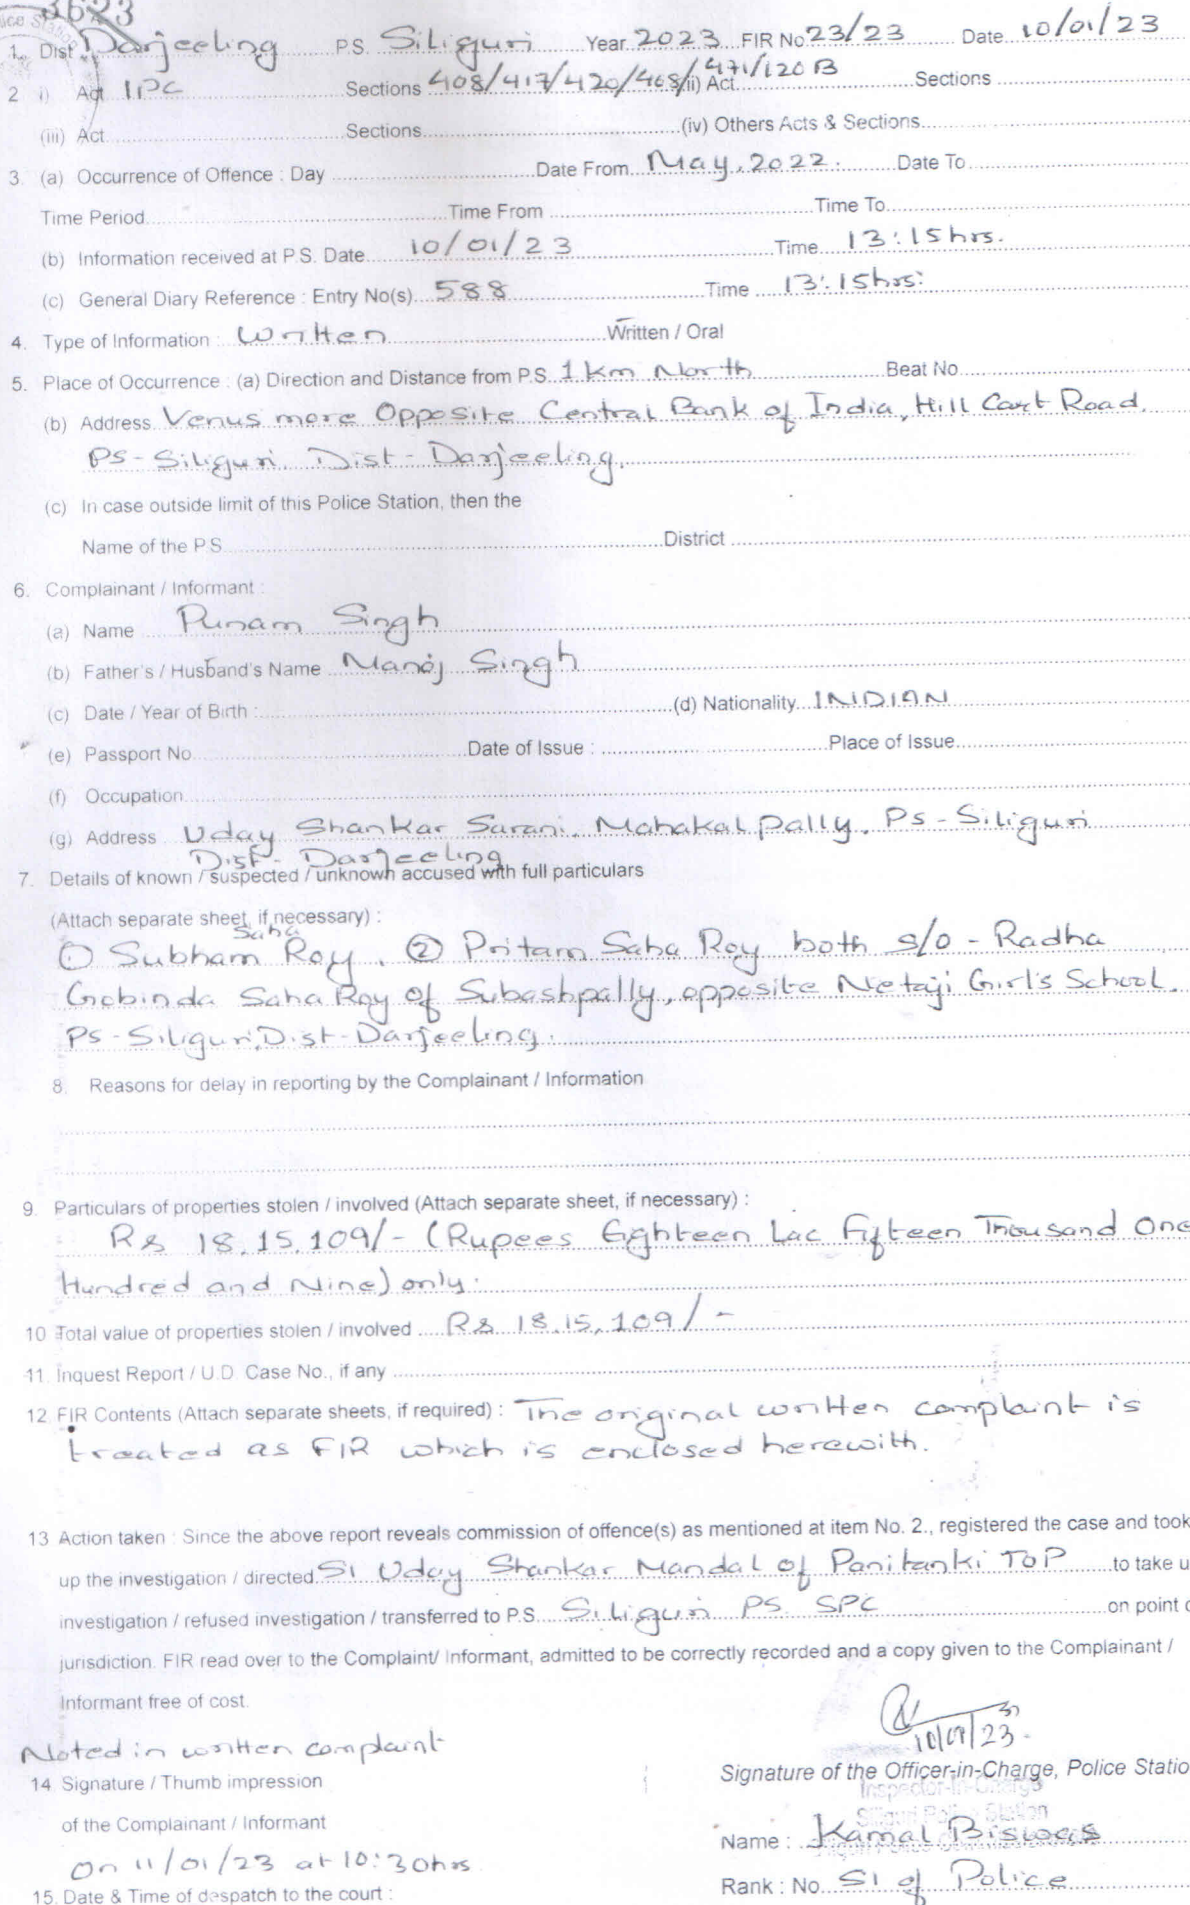 3623
1. Dist Darjeeling P.S. Siliguri Year 2023 FIR No 23/23 Date 10/01/23
2 i) Act IPC Sections 408/417/420/468/471/120B ii) Act Sections
(iii) Act Sections (iv) Others Acts & Sections
3. (a) Occurrence of Offence : Day Date From May, 2022. Date To
Time Period Time From Time To
(b) Information received at P.S. Date 10/01/23 Time 13:15 hrs.
(c) General Diary Reference : Entry No(s) 588 Time 13:15 hrs.
4. Type of Information : Written Written / Oral
5. Place of Occurrence : (a) Direction and Distance from P.S. 1 km North Beat No
(b) Address Venus more Opposite Central Bank of India, Hill Cart Road.
PS - Siliguri, Dist - Darjeeling.
(c) In case outside limit of this Police Station, then the
Name of the P.S. District
6. Complainant / Informant :
(a) Name Punam Singh
(b) Father's / Husband's Name Manoj Singh
(c) Date / Year of Birth : (d) Nationality INDIAN
(e) Passport No. Date of Issue : Place of Issue
(f) Occupation
(g) Address Uday Shankar Sarani, Mahakal pally, Ps - Siliguri
Dist - Darjeeling
7. Details of known / suspected / unknown accused with full particulars
(Attach separate sheet, if necessary) :
① Subham Saha Roy. ② Pritam Saha Roy both s/o - Radha
Gobinda Saha Roy of Subashpally, opposite Netaji Girl's School.
PS - Siliguri, Dist - Darjeeling.
8. Reasons for delay in reporting by the Complainant / Information
9. Particulars of properties stolen / involved (Attach separate sheet, if necessary) :
Rs 18,15,109/- (Rupees Eighteen Lac Fifteen Thousand One
Hundred and Nine) only.
10 Total value of properties stolen / involved Rs 18,15,109/-
11. Inquest Report / U.D. Case No., if any
12. FIR Contents (Attach separate sheets, if required) : The original written complaint is
treated as FIR which is enclosed herewith.
13 Action taken : Since the above report reveals commission of offence(s) as mentioned at item No. 2., registered the case and took
up the investigation / directed SI Uday Shankar Mandal of Panitanki TOP to take u
investigation / refused investigation / transferred to P.S. Siliguri PS. SPC on point o
jurisdiction. FIR read over to the Complaint/ Informant, admitted to be correctly recorded and a copy given to the Complainant /
Informant free of cost.
10/01/23
Noted in written complaint
14 Signature / Thumb impression
of the Complainant / Informant
Signature of the Officer-in-Charge, Police Statio
Inspector-In-Charge
Siliguri Police Station
Name : Kamal Biswas
On 11/01/23 at 10:30hrs
Rank : No. SI of Police
15. Date & Time of despatch to the court :